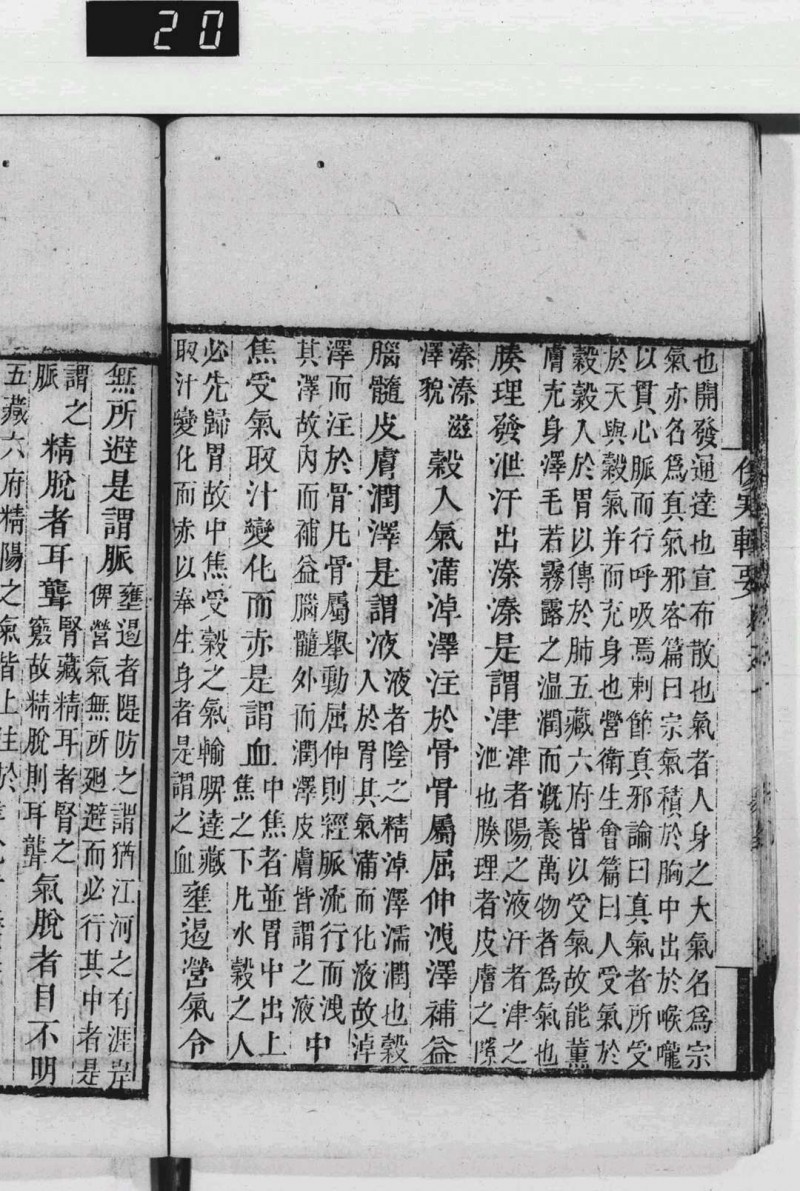 20
輯要
也開發通達也宣布散也氣者人身之大氣名爲宗
氣亦名爲真氣邪客篇曰宗氣積於胸中出於喉嚨
以貫心脈而行呼吸焉刺節真邪論曰真氣者所受
於天與穀氣并而充身也營衛生會篇曰人受氣於
穀穀入於胃以傳於肺五藏六府皆以受氣故能薰
膚充身澤毛若霧露之溫潤而漑養萬物者爲氣也
腠理發泄汗出溱溱是謂津津者陽之液汗者津之泄也腠理者皮膚之隙
溱溱滋澤貌穀入氣滿淖澤注於骨骨屬屈伸洩澤補益
腦髓皮膚潤澤是謂液液者陰之精淖澤濡潤也穀入於胃其氣滿而化液故淖
澤而注於骨凡骨屬舉動屈伸則經脈流行而洩其澤故內而補益腦髓外而潤澤皮膚皆謂之液中
焦受氣取汁變化而赤是謂血中焦者並胃中出上焦之下凡水穀之人
必先歸胃故中焦受穀之氣輸脾達藏取汁變化而赤以奉生身者是謂之血壅遏營氣令
無所避是謂脈壅遏者隄防之謂猶江河之有涯岸俾營氣無所廻避而必行其中者是
謂之脈精脫者耳聾腎藏精耳者腎之竅故精脫則耳聾氣脫者目不明
五藏六府精陽之氣皆上注於